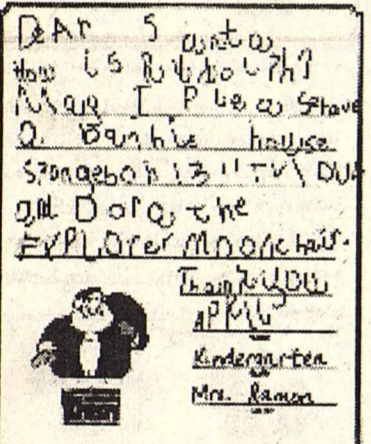 DeAr Santa,
How is Rudolph?
May I Pleas have
a Barbie hallise
Spongebob 13" TV\DVD
and Dora the
EXPLOrer Moonchair.
Thank YOU
APRIL
Kindergarten
Mrs. Ramon